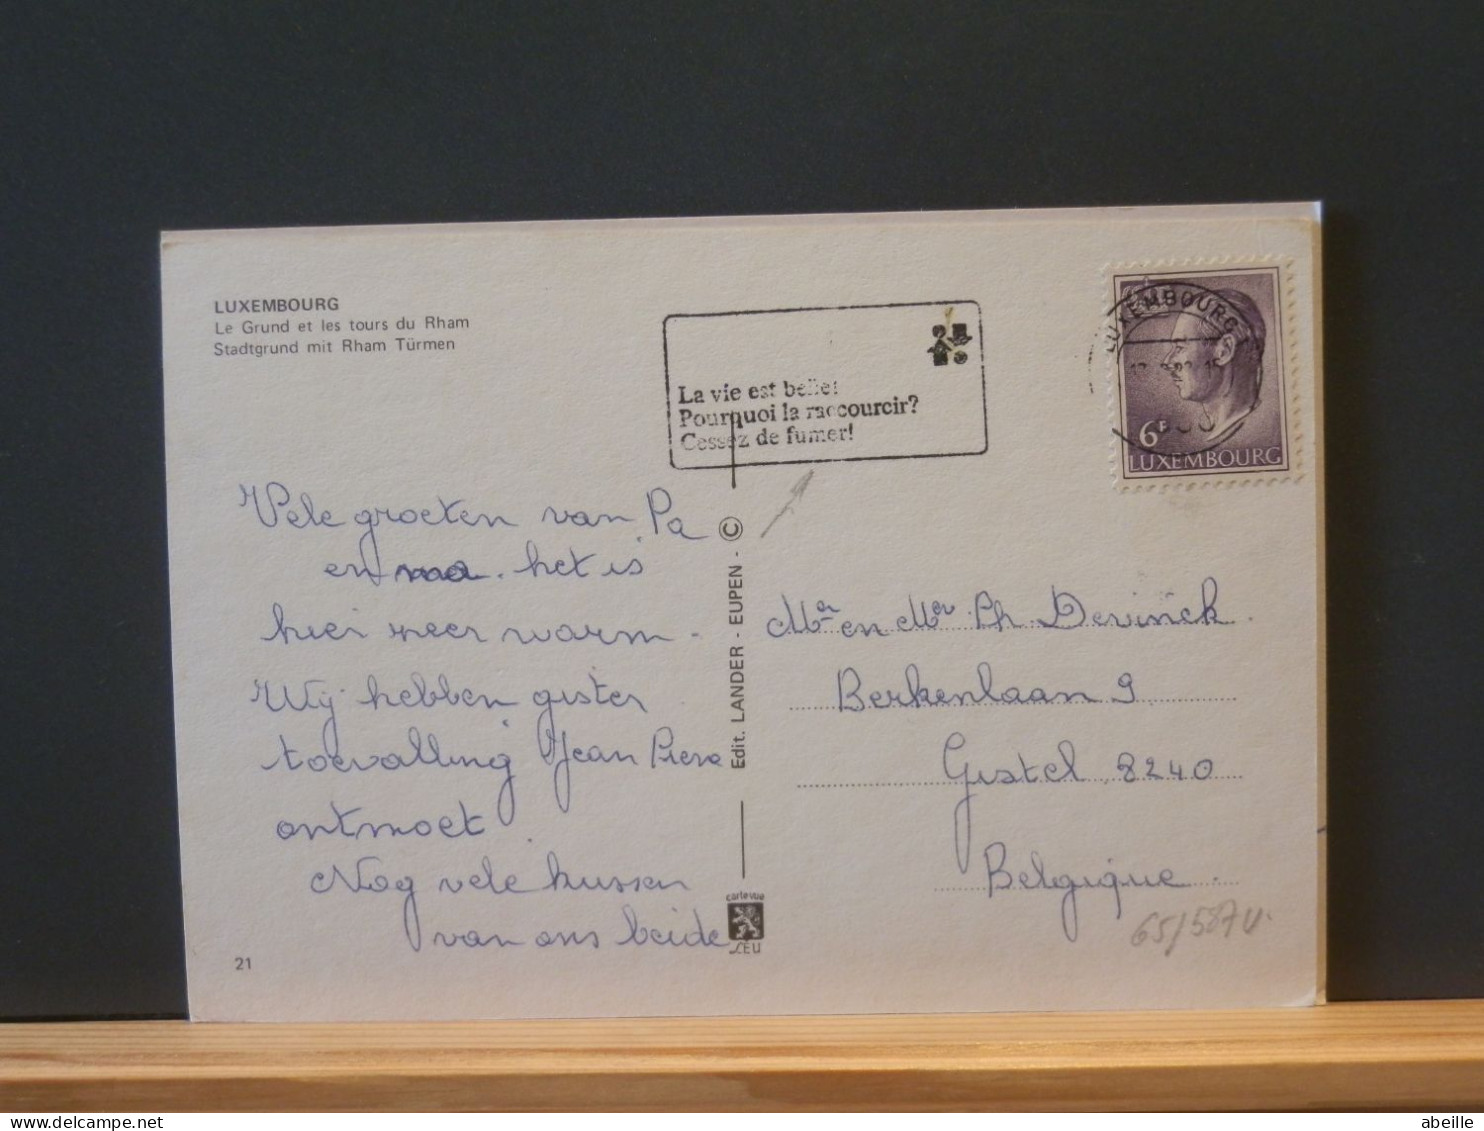 LUXEMBOURG
Le Grund et les tours du Rham
Stadtgrund mit Rham Türmen
La vie est belle!
Pourquoi la raccourcir?
Cessez de fumer!
LUXEMBOURG
6F
LUXEMBOURG
Vele groeten van Pa
en ma. het is
hier zeer warm -
Wij hebben gister
toevalling Jean Piere
ontmoet
Nog vele kussen
van ons beide
21
Edit. LANDER - EUPEN - ©
carte vue
CEU
Mr en Mvr Ph. Devinck.
Berkenlaan 9
Gistel 8240
Belgique.
65/587V.
abeille